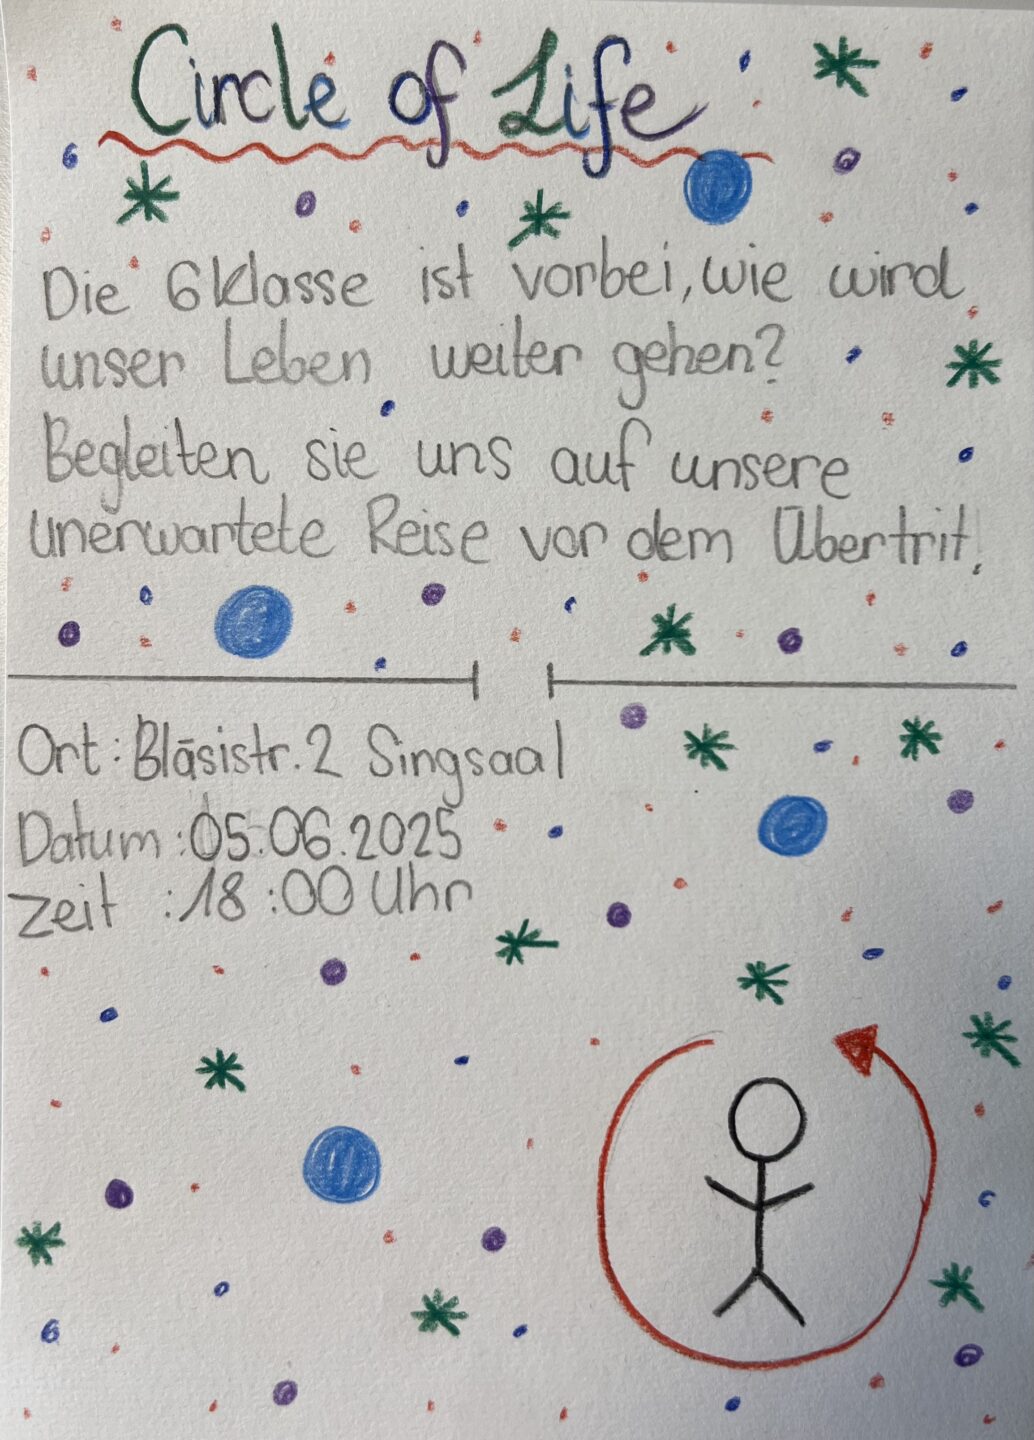 Circle of Life
Die 6Klasse ist vorbei, wie wird
unser Leben weiter gehen?
Begleiten sie uns auf unsere
unerwartete Reise vor dem Übertrit!
Ort: Bläsistr. 2 Singsaal
Datum: 05.06.2025
Zeit : 18:00 Uhr